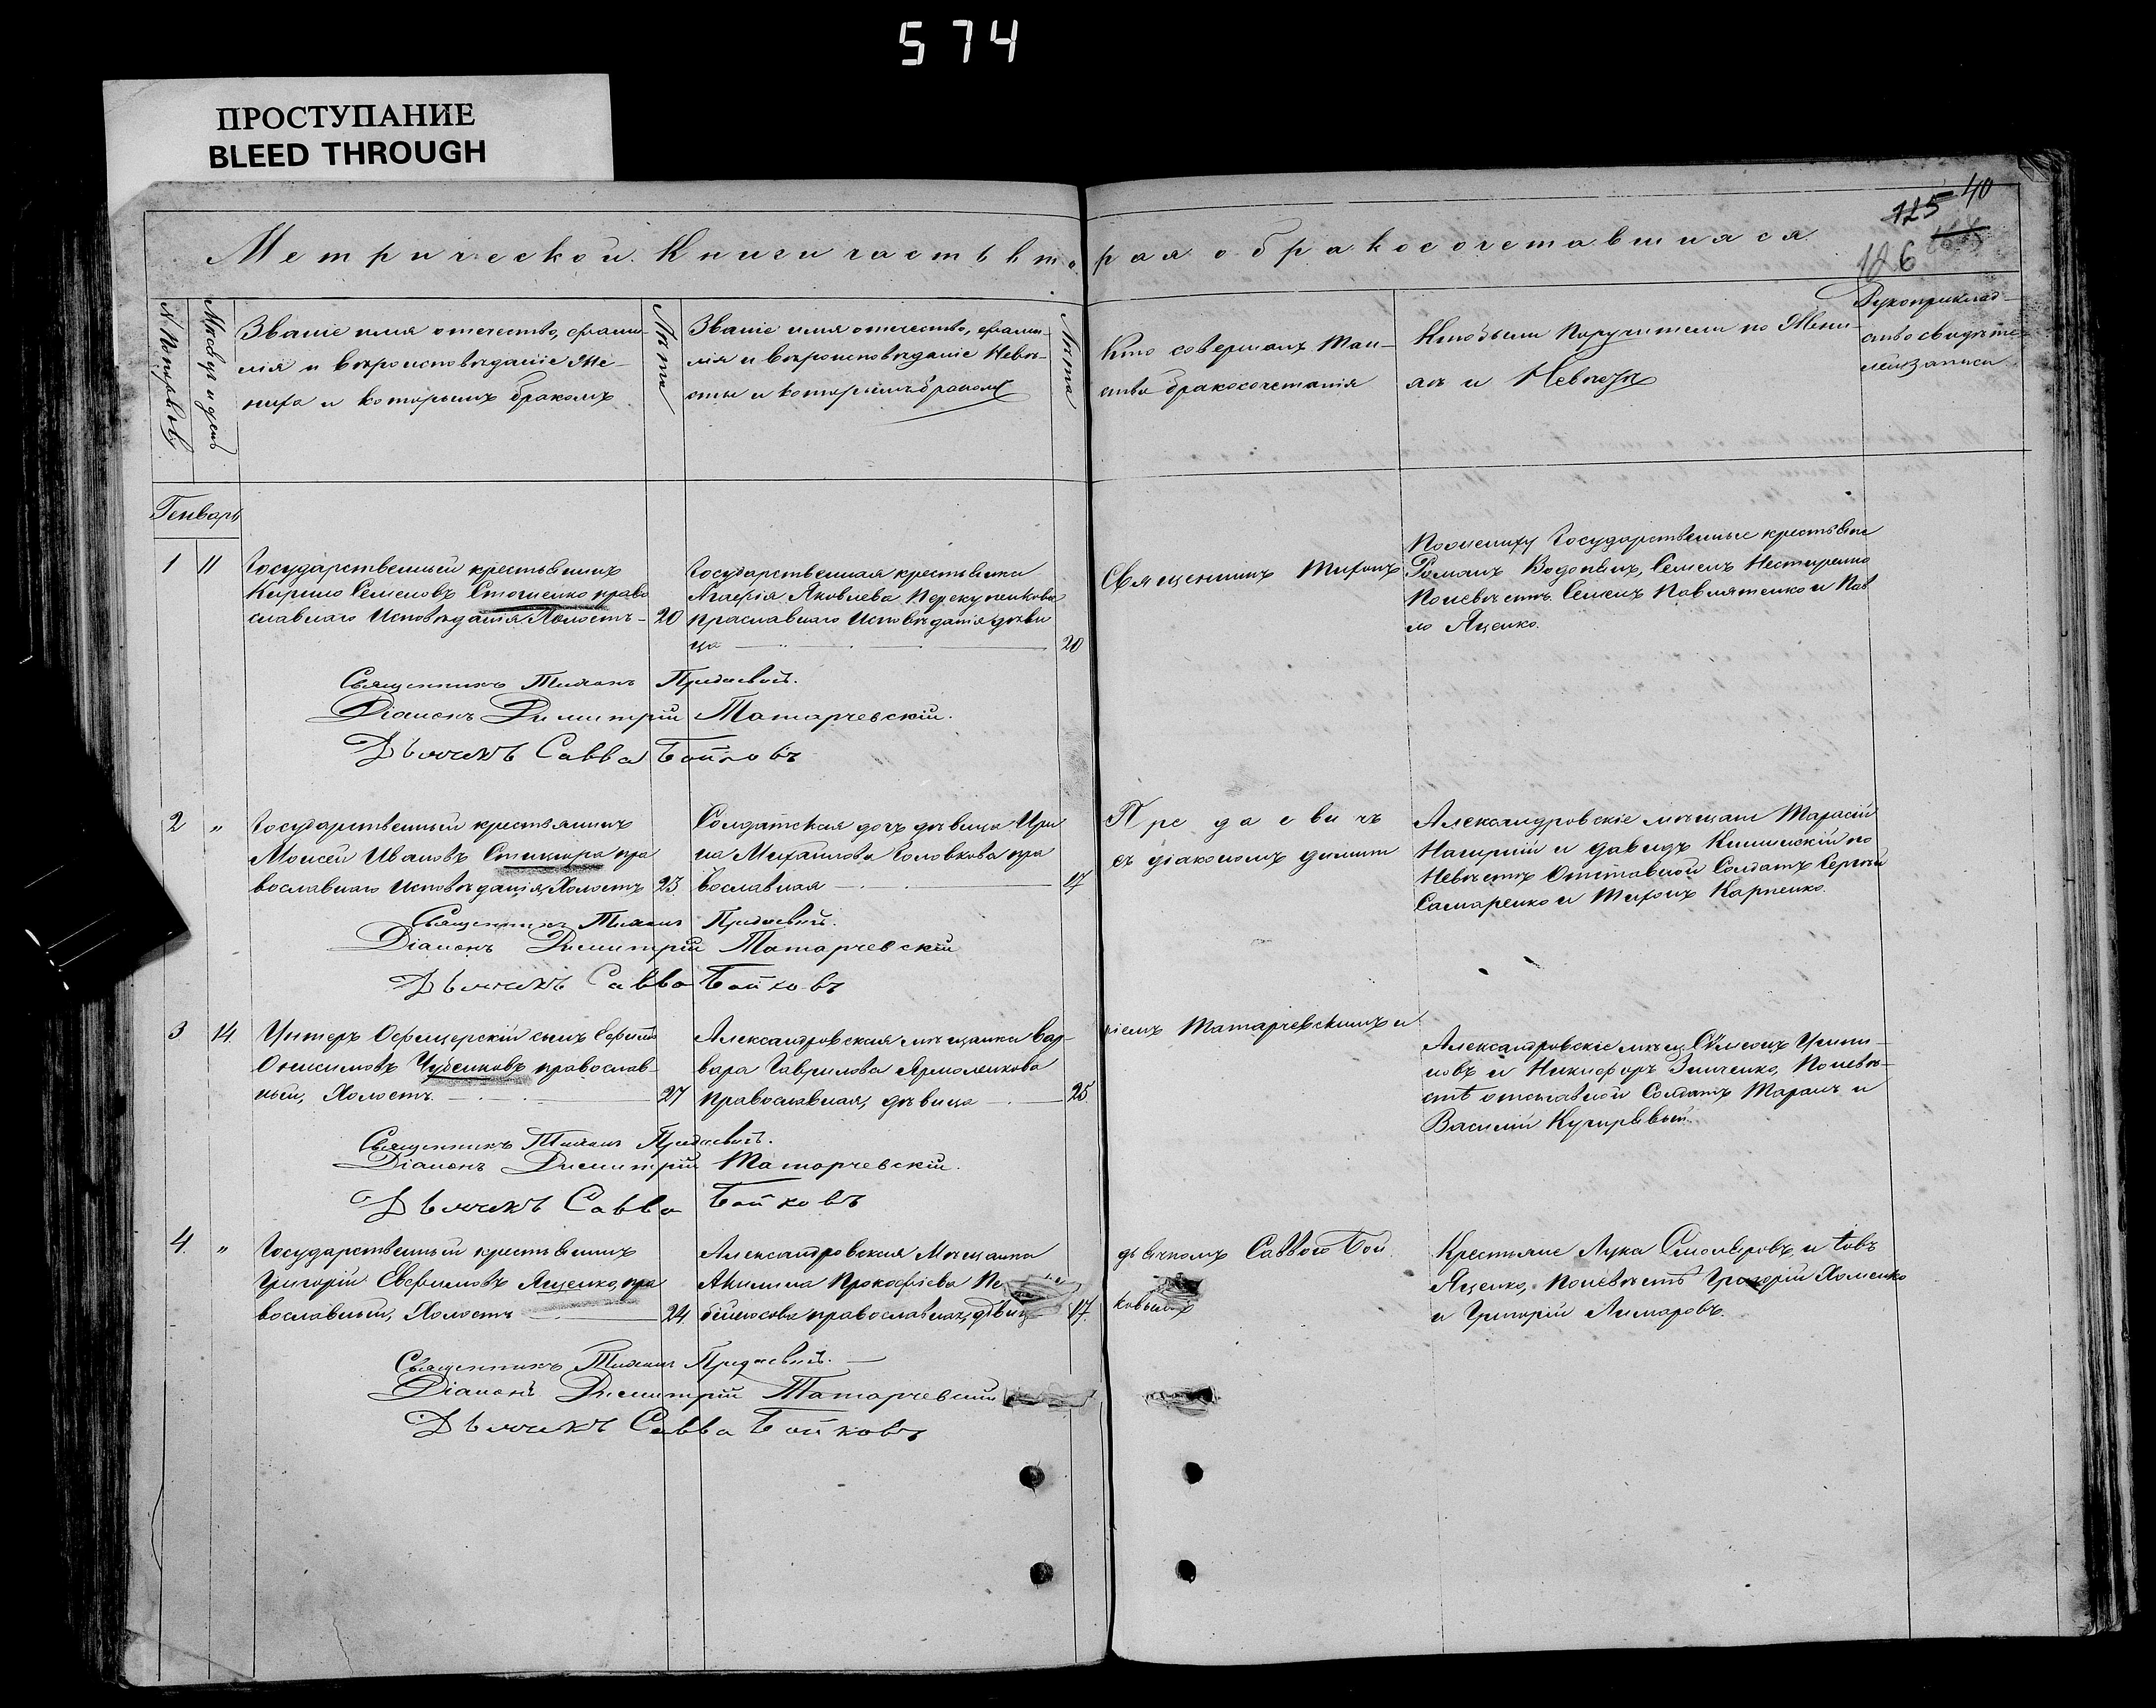 574
ПРОСТУПАНИЕ
BLEED THROUGH
125 40
126
Метрической Книги часть вторая о бракосочетавшихся
Мѣсяцъ и день
Званіе имя отечество, фами-
лія и вѣроисповѣданіе Же-
ниха и которымъ бракомъ
Лѣта
Званіе имя отечество, фами-
лія и вѣроисповѣданіе Невѣ-
сты и которымъ бракомъ
Лѣта
Кто совершалъ Таин-
ство бракосочетанія
Кто были Поручители по Жени-
хѣ и Невѣстѣ
Рукоприклад-
ство свидѣте-
лей записи
Генварь
1 11
Государственный крестьянинъ
Кирило Семеновъ Стошенко право
славнаго Исповѣданія Холостъ - 20
Государственная крестьянка
Агафія Яковлева Перекупенкова
праславнаго Исповѣданія дѣви
ца 20
Священникъ Тихонъ
Пожениху Государственные крестьяне
Романъ Водопьянъ, Семенъ Нестеренко
Поневѣстѣ Семенъ Павлятенко и Пав
ло Яценко.
Священникъ Тихонъ Предаевичъ.
Діаконъ Димитрій Татарчевскій.
Дьячекъ Савва Бойковъ
2 "
Государственный крестьянинъ
Моисей Ивановъ пра
вославнаго Исповѣданія, Холостъ 23
Солдатская дочь дѣвица Ири
на Михайлова Головкова пра
вославная 17
Предаевичъ
съ діакономъ димит
Александровскіе мѣщане Тарасій
и давидъ по
Невѣстѣ Отставной Солдатъ Сергѣй
Самаренко и Тихонъ Карпенко.
Священникъ Тихонъ Предаевичъ.
Діаконъ Димитрій Татарчевскій
Дьячекъ Савва Бойковъ
3 14.
Унтеръ Офицерскій сынъ Ефимъ
Онисимовъ Чубенковъ православ-
ный, Холостъ. 27
Александровская мѣщанка Вар-
вара Гаврилова Ярмоленкова
православная, дѣвица 25
ріемъ Татарчевскимъ и
Александровскіе мѣщ. Симеонъ
и Никифоръ Зинченко, Поневѣ-
стѣ отставной Солдатъ Таранъ и
Василій
Священникъ Тихонъ Предаевичъ.
Діаконъ Димитрій Татарчевскій.
Дьячекъ Савва Бойковъ
4. "
Государственный крестьянинъ
Григорій Евфимовъ Яценко, пра
вославный, Холостъ 24.
Александровская Мѣщанка
Акилина Прокофіева
православная, дѣвиц 17.
дьячкомъ Саввою Бой
ковымъ
Крестьяне Лука и
Яценко, Поневѣстѣ Григорій Хоменко
и Григорій Лимаровъ.
Священникъ Тихонъ Предаевичъ.
Діаконъ Димитрій Татарчевскій
Дьячекъ Савва Бойковъ